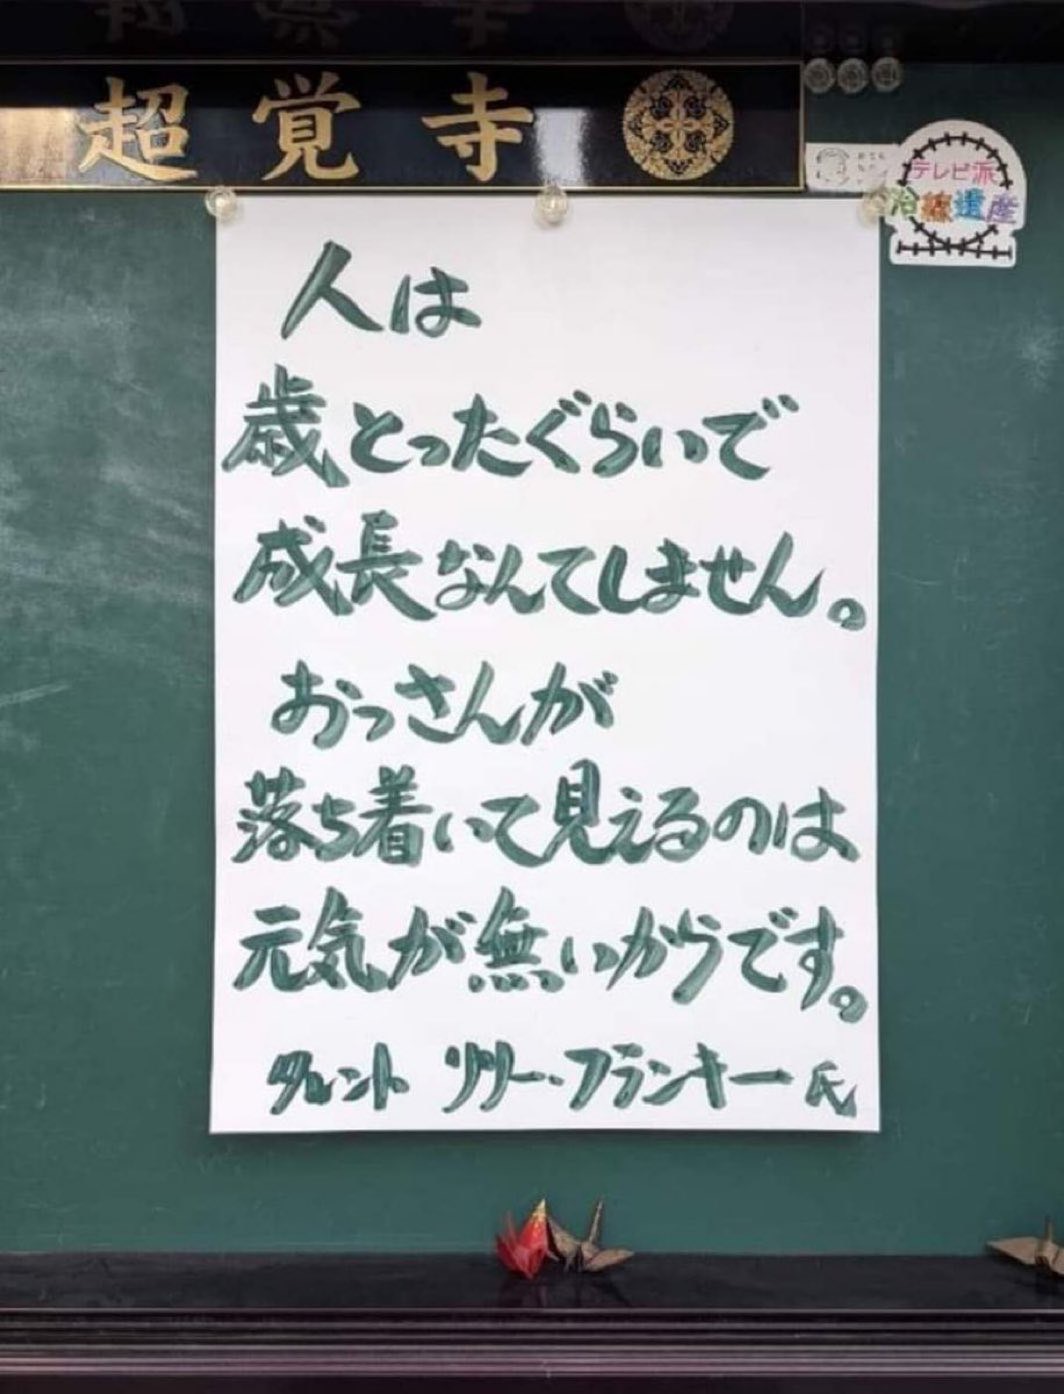 超覚寺
テレビ派
沿線遺産
人は
歳とったぐらいで
成長なんてしません。
おっさんが
落ち着いて見えるのは
元気が無いからです。
タレント リリー・フランキー氏